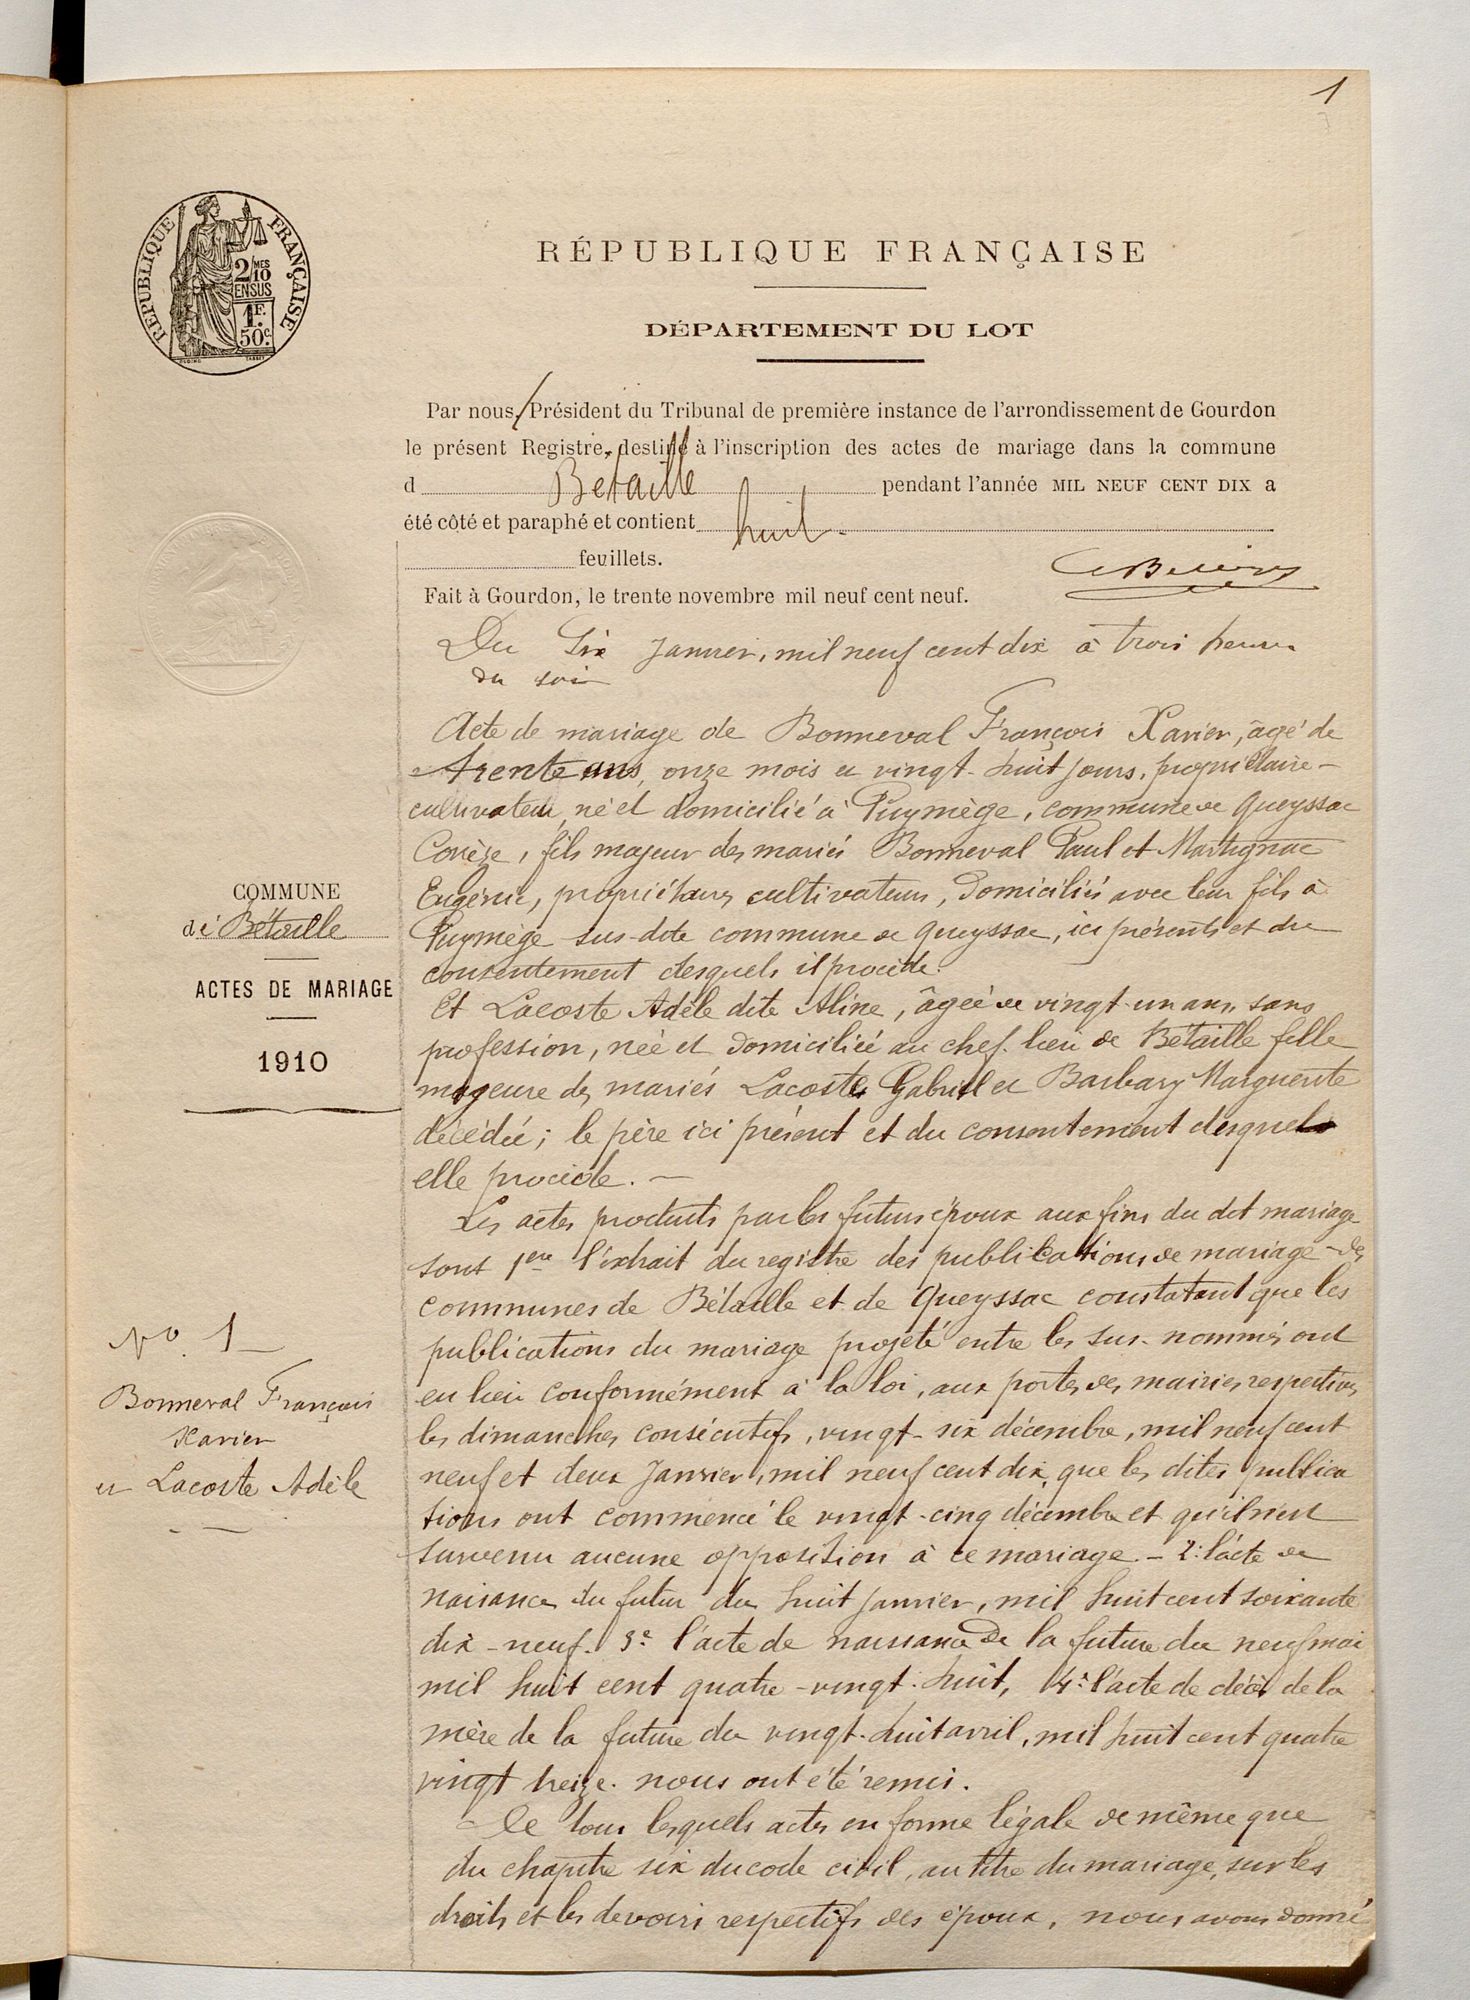 1
RÉPUBLIQUE FRANÇAISE
2/MES
10
ENSUS
1F.
50c.
RÉPUBLIQUE FRANÇAISE
DÉPARTEMENT DU LOT
Par nous, Président du Tribunal de première instance de l'arrondissement de Gourdon
le présent Registre, destiné à l'inscription des actes de mariage dans la commune
d Betaille pendant l'année MIL NEUF CENT DIX a
été côté et paraphé et contient huit
feuillets.
Fait à Gourdon, le trente novembre mil neuf cent neuf.
Du Six Janvier, mil neuf cent dix à trois heures
du soir
Acte de mariage de Bonneval François Xavier, âgé de
trente ans, onze mois et vingt-huit jours, propriétaire-
cultivateur, né et domicilié à Puymège, commune de Queyssac
Corrèze, fils majeur des mariés Bonneval Paul et Martignac
Eugénie, propriétaires cultivateurs, domiciliés avec leur fils à
Puymège sus-dite commune de Queyssac, ici présents et du
consentement desquels il procède.
Et Lacoste Adèle dite Aline, âgée de vingt-un ans, sans
profession, née et domiciliée au chef-lieu de Bétaille fille
mageure des mariés Lacoste Gabriel et Barbary Marguerite
décédée; le père ici présent et du consentement desquels
elle procède. —
Les actes produits par les futurs époux aux fins du dit mariage
sont 1ent l'extrait du registre des publications de mariage des
communes de Bétaille et de Queyssac constatant que les
publications du mariage projeté entre les sus-nommés ont
eu lieu conformément à la loi, aux portes des mairies respectives
les dimanches consécutifs, vingt-six décembre, mil neuf cent
neuf et deux Janvier, mil neuf cent dix, que les dites publica
tions ont commencé le vingt-cinq décembre et qu'il n'est
survenu aucune opposition à ce mariage. - 2° l'acte de
naissance du futur du huit janvier, mil huit cent soixante
dix-neuf. 3° l'acte de naissance de la future du neuf mai
mil huit cent quatre-vingt-huit, 4° l'acte de décès de la
mère de la future du vingt-huit avril, mil huit cent quatre
vingt treize. nous ont été remis.
De tous lesquels actes en forme légale de même que
du chapitre six du code civil, au titre du mariage, sur les
droits et les devoirs respectifs des époux, nous avons donné
COMMUNE
de Bétaille
ACTES DE MARIAGE
1910
No. 1
Bonneval François
Xavier
et Lacoste Adèle